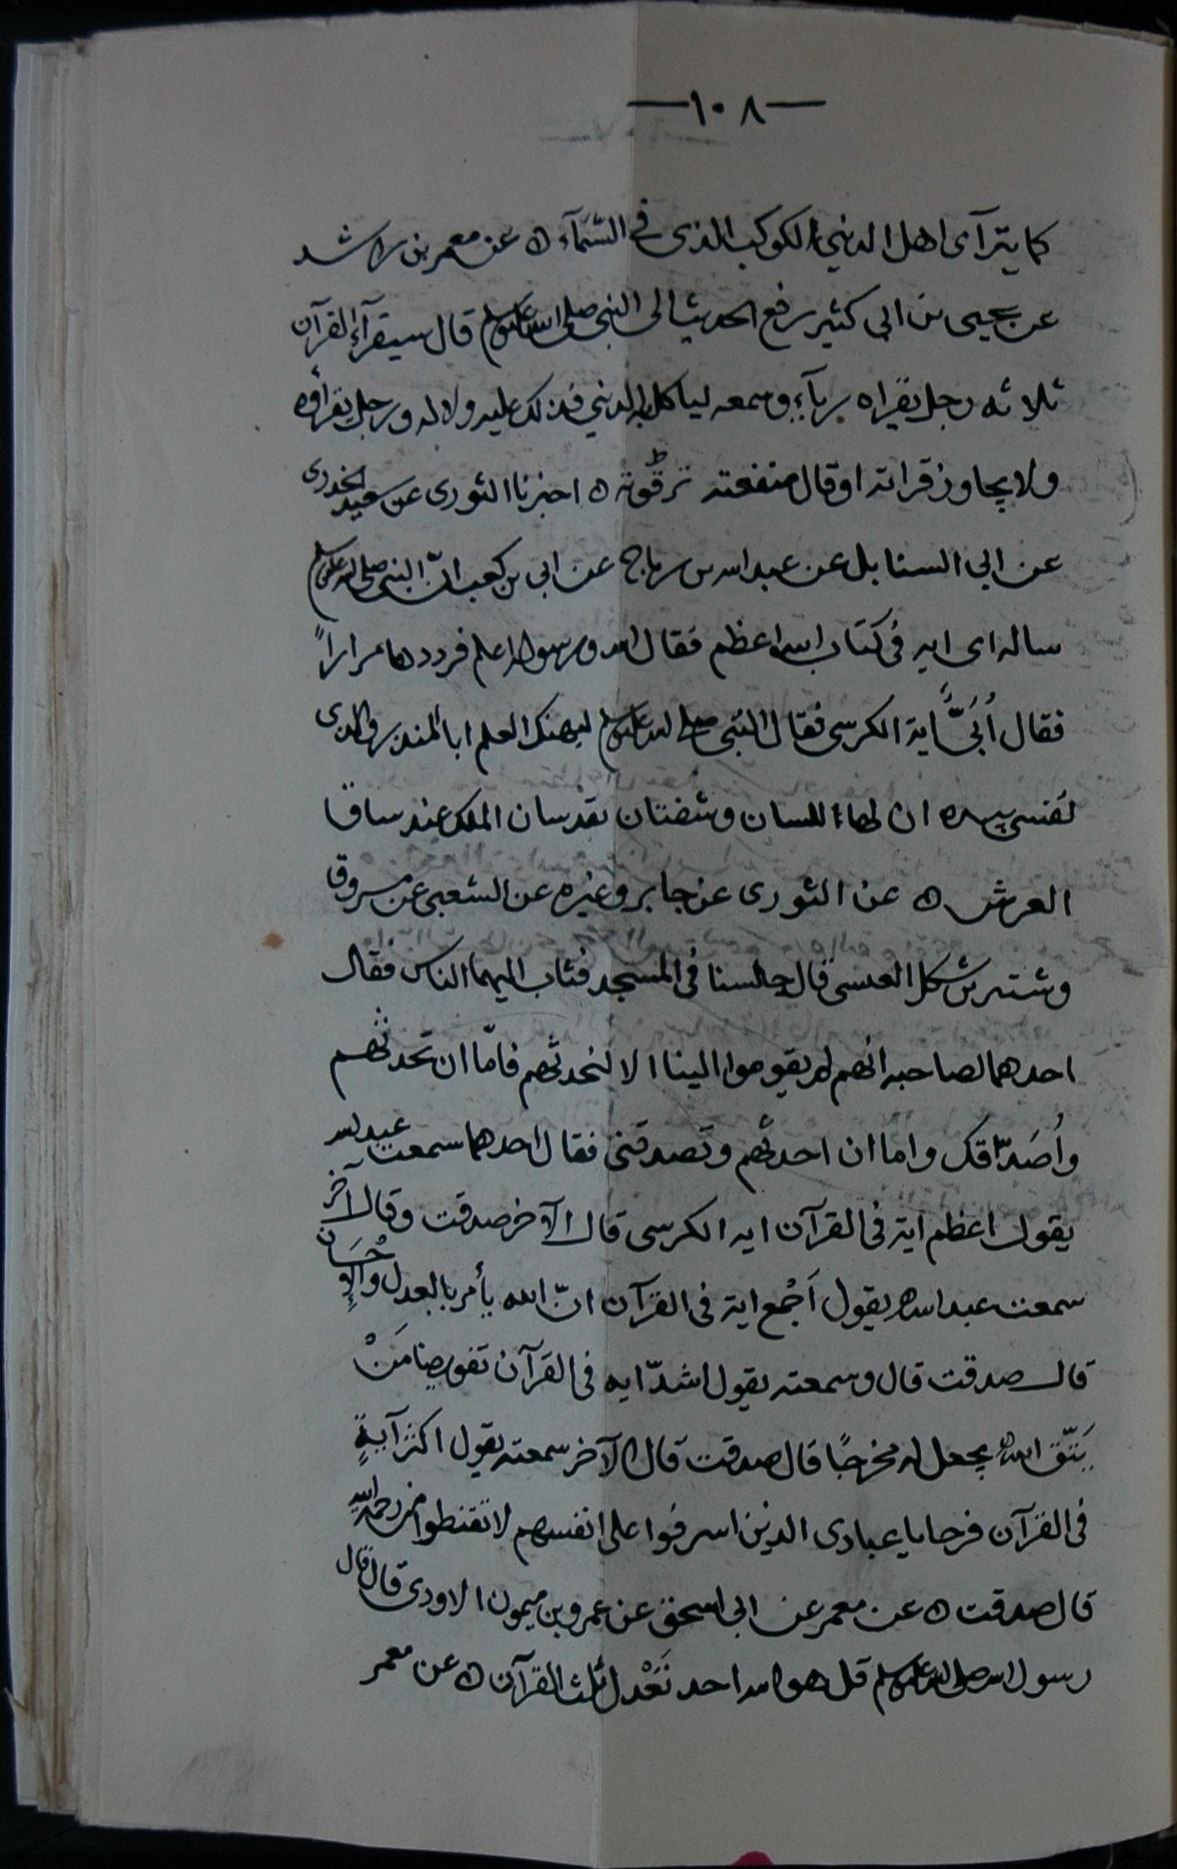 —١٠٨—
كما يترآى اهل الدنيا الكوكب الذى فى السّمآء ه عن معمر بن راشد
عن يحيى بن ابى كثير رفع الحديث الى النبى صلى الله عليه وسلم قال سيقرآء القرآن
ثلاثه رجل يقراه برآءٍ وسمعه لياكل به الدنيى فذلك عليه ولا له ورجل يقرأوه
ولا يجاوز قراته او قال منفعته ترقوته ه اخبرنا الثورى عن سعيد الخدرى
عن ابى السنابل عن عبد الله بن رباح عن ابى بن كعب انّ النبى صلى الله عليه وسلم
ساله اى ايه فى كتاب الله اعظم فقال الله ورسوله اعلم فرددها مراراً
فقال اُبَىٌّ اية الكرسى فقال النبى صلى الله عليه وسلم ليهنك العلم ابا المنذر والذى
نفسى بيده ان لها اللسان وشفتان تقدسان الملك عند ساق
العرش ه عن الثورى عن جابر وغيره عن الشعبى عن مسروق
وشتير بن شكل العبسى قال جالسنا فى المسجد فثاب اليهما الناس فقال
احدهما لصاحبه انهم لم يقوموا الينا الا لنحدثهم فامّا ان تحدثهم
واُصَدّقك واما ان احدثهم وتصدقنى فقال احدهما سمعت عبد الله
يقول اعظم اية فى القرآن ايه الكرسى قال الآخر صدقت وقال آخر
سمعت عبد الله يقول اَجْمع اية فى القرآن انّ الله يأمر بالعدل والإِحْسَان
قال صدقت قال وسمعته يقول اشدّ ايه فى القرآن تفويضا مَنْ
يَتّق الله يجعل له مخرجًا قال صدقت قال الآخر سمعته يقول اكثر آيةٍ
فى القرآن فرحا يا عبادى الذين اسرفوا على انفسهم لا تقنطوا من رحمة الله
قال صدقت ه عن معمر عن ابى اسحق عن عمرو بن ميمون الاودى قال قال
رسول الله صلى الله عليه وسلم قل هو الله احد تَعْدل ثلث القرآن ه عن معمر